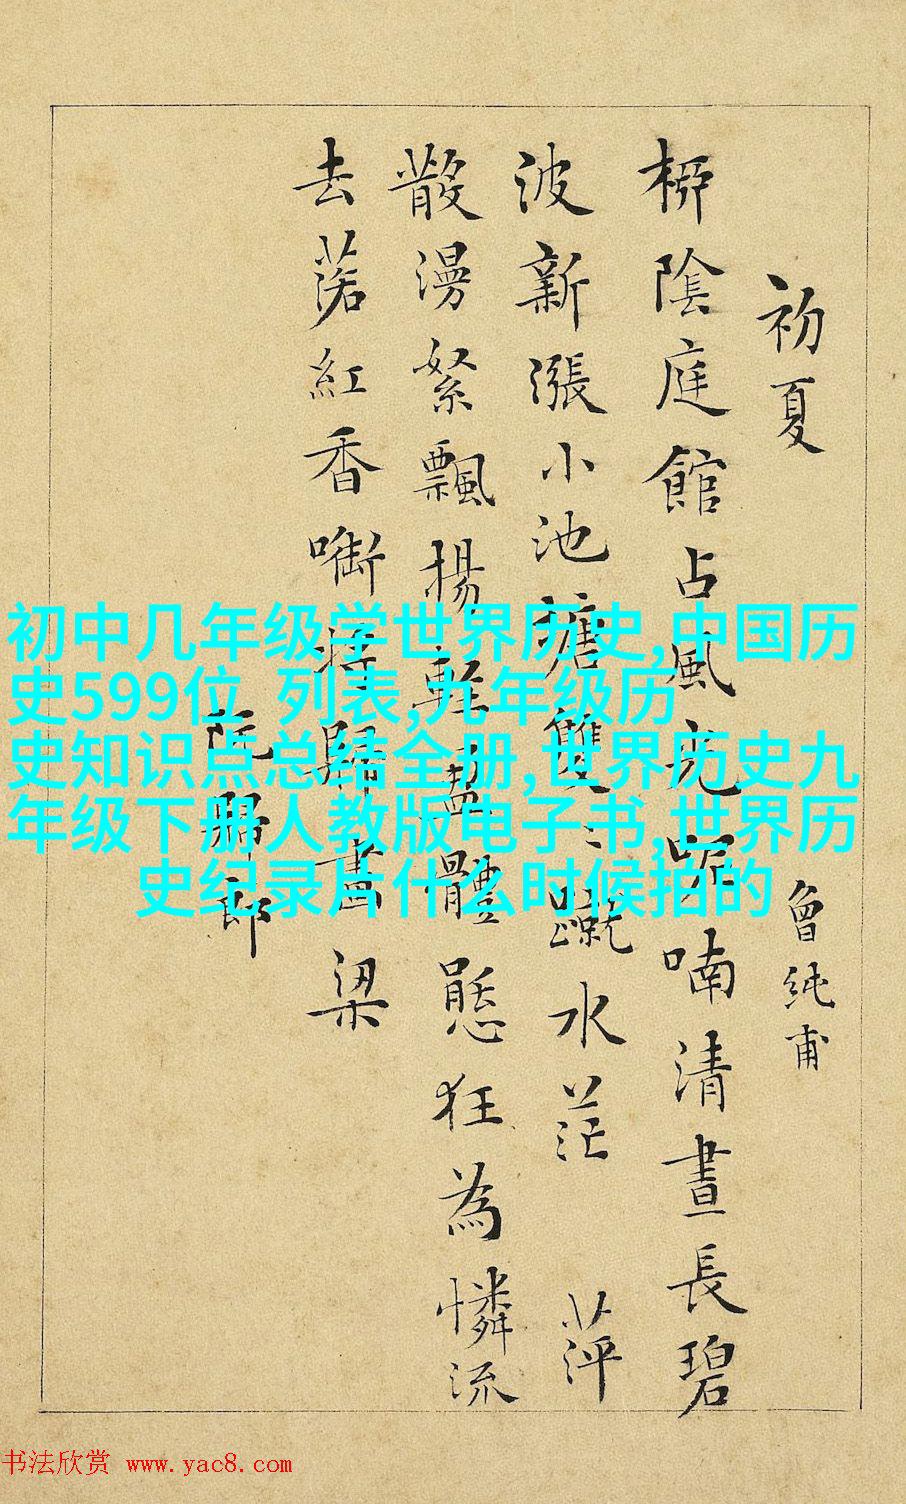 初夏 曾純甫
柳陰庭館占風光呢喃清晝長碧
波新漲小池塘雙〻蹴水茫 萍
散漫絮飄揚輕盈體態狂為憐流
去落紅香啣將歸畫梁
阮郎
初中几年级学世界历史,中国历
史599位 列表,九年级历
史知识点总结全册,世界历史九
年级下册人教版电子书,世界历
史纪录片什么时候拍的
书法欣赏 www.yac8.com